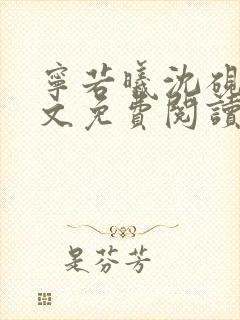 寧若曦沈硯
文免費閱讀
是芬芳